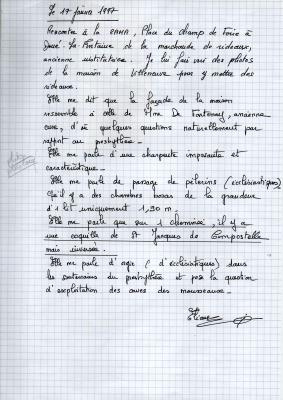 Le 17 février 1997
Rencontre à la SAMA, Place du Champ de Foire à
Doué. La Fontaine de la marchande de rideaux,
ancienne institutrice. Je lui fais voir des photos
de la maison de Villeneuve pour y mettre des
rideaux.
Elle me dit que la façade de la maison
ressemble à celle de Mme De Fontenay, ancienne
cure, d'où quelques questions naturellement par
rapport au presbytère.
Elle me parle d'une charpente imposante et
caractéristique.
Elle me parle de passage de pèlerins (ecclésiastiques)
qu'il y a des chambres basses de la grandeur
d'1 lit uniquement 1,90 m.
Elle me parle que sur 1 cheminée, il y a
une coquille de St Jacques de Compostelle
mais inversée.
Elle me parle d'orgie (d'ecclésiastiques) dans
les souterrains du presbytère et pose la question
d'exploitation des caves des mousseaux.